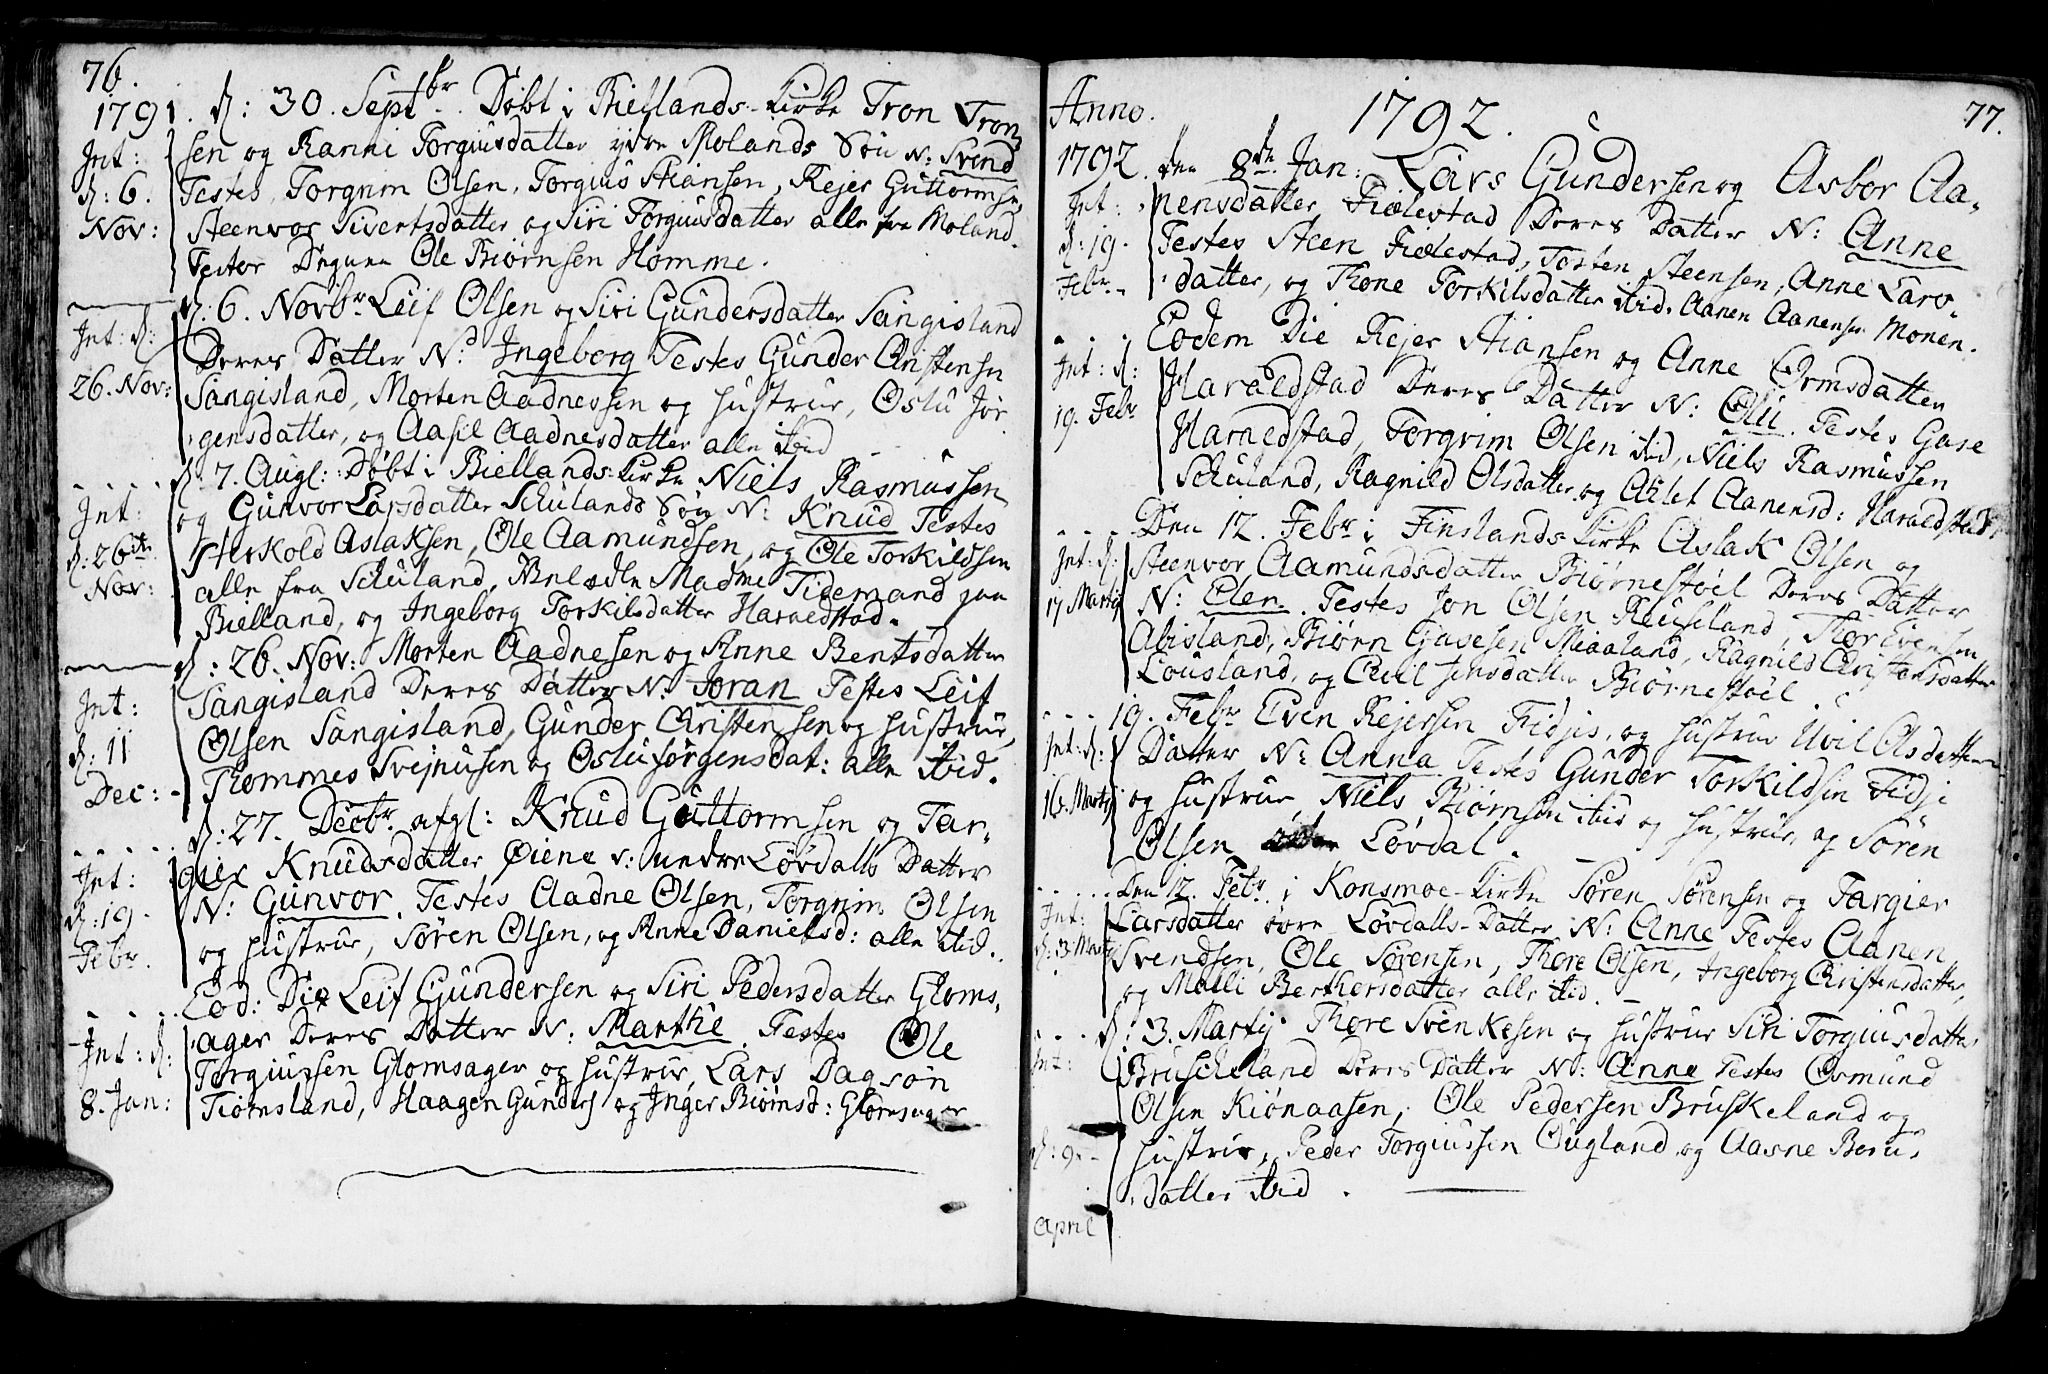 76.
1791. d: 30. Septbr. Døbt i Biellands-Kirke Tron Tron-
Int: sen og Ranni Torgiusdatter ydre Molands Søn N: Svend
d: 6. Testes, Torgrim Olsen, Torgius Stiansen, Rejer Guttormsen
Nov: Steenvor Sivertsdatter og Siri Torgiusdatter alle fra Moland.
Testor Degnen Ole Biørnsen Homme.
d. 6. Novbr Leif Olsen og Siri Gundersdatter Sangisland
Int: d: Deres Datter N: Ingeborg Testes Gunder Christensen
26. Nov: Sangisland, Morten Aadnessen og Hustrue, Oslu Jør
gensdatter, og Aasil Aadnesdatter alle ibid
d. 7. Augl: Døbt i Biellands-Kirke Niels Rasmussen
Int: og Gunvor Larsdatter Schulands Søn N: Knud Testes
d: 26de Herkold Aslaksen, Ole Aamundsen, og Ole Torkildsen
Nov: alle fra Schuland, Madme Tidemand paa
Bielland, og Ingeborg Torkilsdatter Haraldstad.
d: 26. Nov: Morten Aadnesen og Anne Bentsdatter
Int: Sangisland Deres Datter N: Joran Testes Leif
d: 11 Olsen Sangisland, Gunder Christensen og Hustrue,
Dec: Thommes Svejnusen og Oslu Jørgensdat: alle ibid.
d: 27. Decbr. afgl: Knud Guttormsen og Tar-
Int: gier Knudsdatter Øiene v: nedre Løvdalls Datter
d: 19. N: Gunvor. Testes Aadne Olsen, Torgrim Olsen
Febr. og Hustrue, Søren Olsen, og Anne Danielsd: alle ibid.
Eod: Die Leif Gundersen og Siri Pedersdatter Gloms-
Int: d: ager Deres Datter N: Marthe. Testes Ole
Torgiussen Glomsager og Hustrue, Lars Dagsøn
8. Jan: Tiomsland, Haagen Gunders og Inger Biørnsd: Glomsager
Anno. 1792. 77.
1792. den 8de Jan: Lars Gundersen og Asbor Aa-
Int: nensdatter Fiælestad Deres Datter N: Anne
d: 19. Testes Steen Fiælestad, Tosten Steensen, Anne Lars-
Febr. datter, og Thone Torkilsdatter ibid. Aanen Aanensen Monen.
Eodem Die Rejer Stiansen og Anne Ormsdatter
Int: d: Haraldstad Deres Datter N: Oli. Testes Gase
19. Febr Haraldstad, Torgrim Olsen ibid, Niels Rasmussen
Schuland, Ragnild Olsdatter og Atlet Aanensd: Haraldstad
Den 12. Febr i Finslands Kirke Aslak Olsen og
Int: d: Steenvor Aamundsdatter Biørnestøel Deres Datter
17 Martij N: Elen. Testes Jon Olsen Reuseland, Thor Evensen
Abisland, Biørn Gasesen Miaaland, Ragnild Christensdatter
Lousland, og Jensdatter Biørnestøel.
19. Febr Even Rejersen Fidjis, og Hustrue Uvil Asdatters
Int: d: Datter N: Anna Testes Gunder Torkildsen Fidje
16. Martij og Hustrue, Niels Biørnsen ibid og Hustrue, og Søren
Olsen Løvdal.
Den 12. Febr. i Konsmoe-Kirke Søren Sørensen og Targier
Int: Larsdatter øvre Løvdalls-Datter, N: Anne Testes Aanen
d: 3 Martij Svendsen, Ole Sørensen, Thore Olsen, Ingeborg Christensdatter,
og Malli Berthorsdatter alle ibid.
d: 3. Martij Thore Svenkesen og Hustrue Siri Torgiusdatter
Int: Bruscheland Deres Datter N: Anne Testes Osmund
Olsen Kiønaasen, Ole Pedersen Bruskeland og
d: 9. Hustrue, Peder Torgiussen Ougland og Aasne Beru-
datter ibid.
April